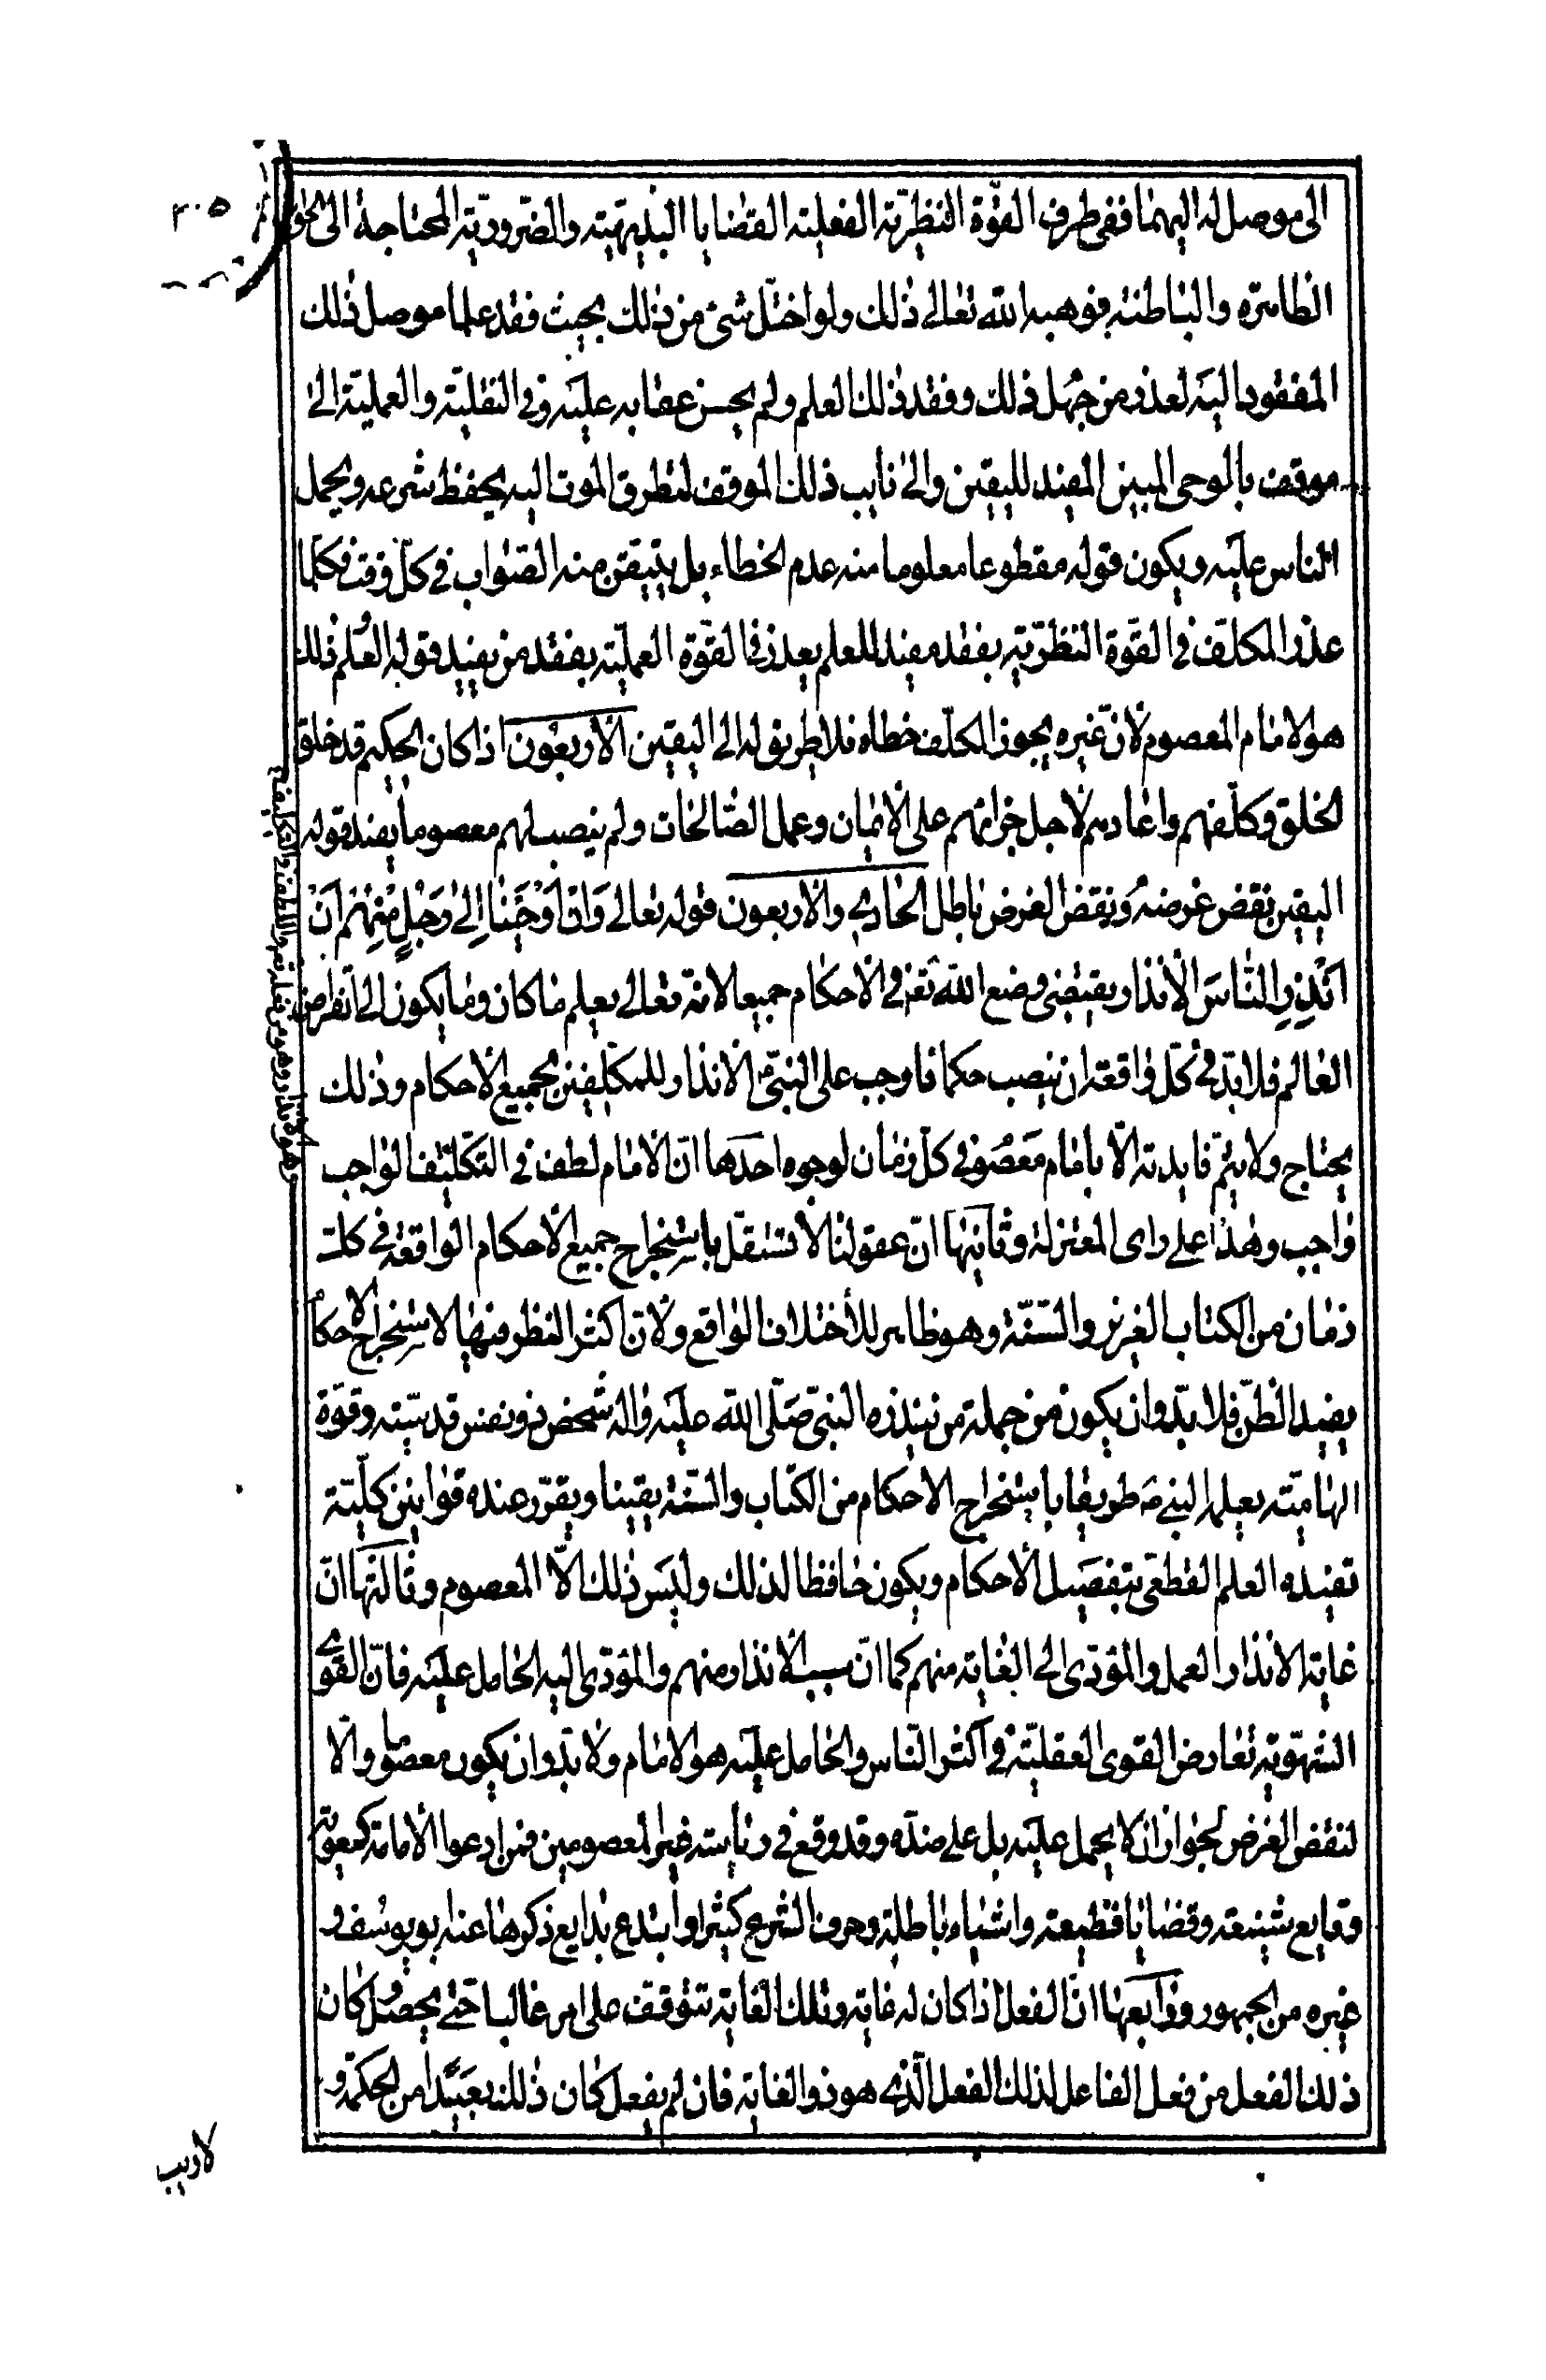 ٢٠٥
الى موصل له اليهما ففى طرف القوّة النظريّة الفعلية القضايا البديهيّة والضّروريّة المحتاجة الى الحواس
الظاهرة والباطنة فوهبه الله تعالى ذلك ولو اختلّ شئ من ذلك بحيث فقد علما موصل ذلك
المفقود اليه لعذر من جهل ذلك وفقد ذلك العلم ولم يحسن عقابه عليه وفى النقليّة والعمليّة الى
موقف بالوحى المبين المفيد لليقين والى نايب ذلك الموقف لتطرق الموت اليه يحفظ شرعه ويحمل
الناس عليه ويكون قوله مقطوعا معلوما منه عدم الخطاء بل يتيقن منه الصّواب فى كلّ وقت فكلما
عذر المكلّف فى القوّة النظريّة بفقد مفيد للعلم يعذر فى القوّة العمليّة بفقد من يفيد قوله العلم ذلك
هو الامام المعصوم لانّ غيره يجوز المكلّف خطاه فلا طريق له الى اليقين الأربعون اذا كان الحكيم قد خلق
الخلق وكلّفهم واعادهم لاجل جزائهم على الايمان وعمل الصّالحات ولم ينصب لهم معصوما يفيد قوله
اليقين نقض غرضه ونقض الغرض باطل الحادى والاربعون قوله تعالى وَان اَوْحَيْنا اِلىٰ رَجُلٍ مِنْهُمْ اَنْ
اَنْذِرِ النّاسَ الانذار يقتضى وضع الله تع فى الاحكام جميعا لانه تعالى يعلم ما كان وما يكون الى انقراض
العالم فلا بدّ فى كلّ واقعة ان ينصب حكما فاوجب على النبىّ ص الانذار للمكلّفين بجميع الأحكام وذلك
يحتاج ولا يتمّ فايدته الّا بامام معصوم فى كلّ زمان لوجوه احدها انّ الامام لطف فى التكليف الواجب
واجب وهذا على راى المعتزلة وثانيها انّ عقولنا لا تستقلّ باستخراج جميع الاحكام الواقعة فى كلّ
زمان من الكتاب العزيز والسّنّة وهو ظاهر للأختلاف الواقع ولانّ اكثر النظر فيها لاستخراج الاحكام
يفيد الظّن فلا بدّ وان يكون من جملة من ينذره النبىّ صَلّى الله عليه واله شخص ذو نفس قدسيّته وقوّة
الهاميّته يعلمه النبى ص طريقا باستخراج الاحكام من الكتاب والسّنّة يقينا ويقرّر عنده قوانين كليّة
تفيده العلم القطعى بتفصيل الأحكام ويكون حافظا لذلك وليس ذلك الّا المعصوم وثالثها انّ
غاية الانذار العمل والمؤدّى الى الغاية منهم كما انّ سبب الانذار منهم والمؤدّى اليه الحامل عليه فانّ القوى
الشهوّية تعارض القوى العقليّة فى اكثر النّاس والحامل عليه هو الامام ولا بدّ وان يكون معصوما والّا
لنقض الغرض لجواز ان لا يحمل عليه بل على ضدّه وقد وقع فى رياسة غير المعصومين فمن ادعوا الأمامة كمعوية
وقايع شنيعة وقضايا فظيعة واشياء باطلة وحرف الشرع كثيرا وابتدع بدايع ذكرها عنه ابو يوسف و
غيره من الجمهور ورابعها انّ الفعل اذا كان له غاية وتلك الغاية تتوقف على امر غالبا حتى يحصل وكان
ذلك الفعل من فعل الفاعل لذلك الفعل الّذى هو ذو الغاية فان لم يفعل كان ذلك بعيدا من الحكمة و
لا ريب